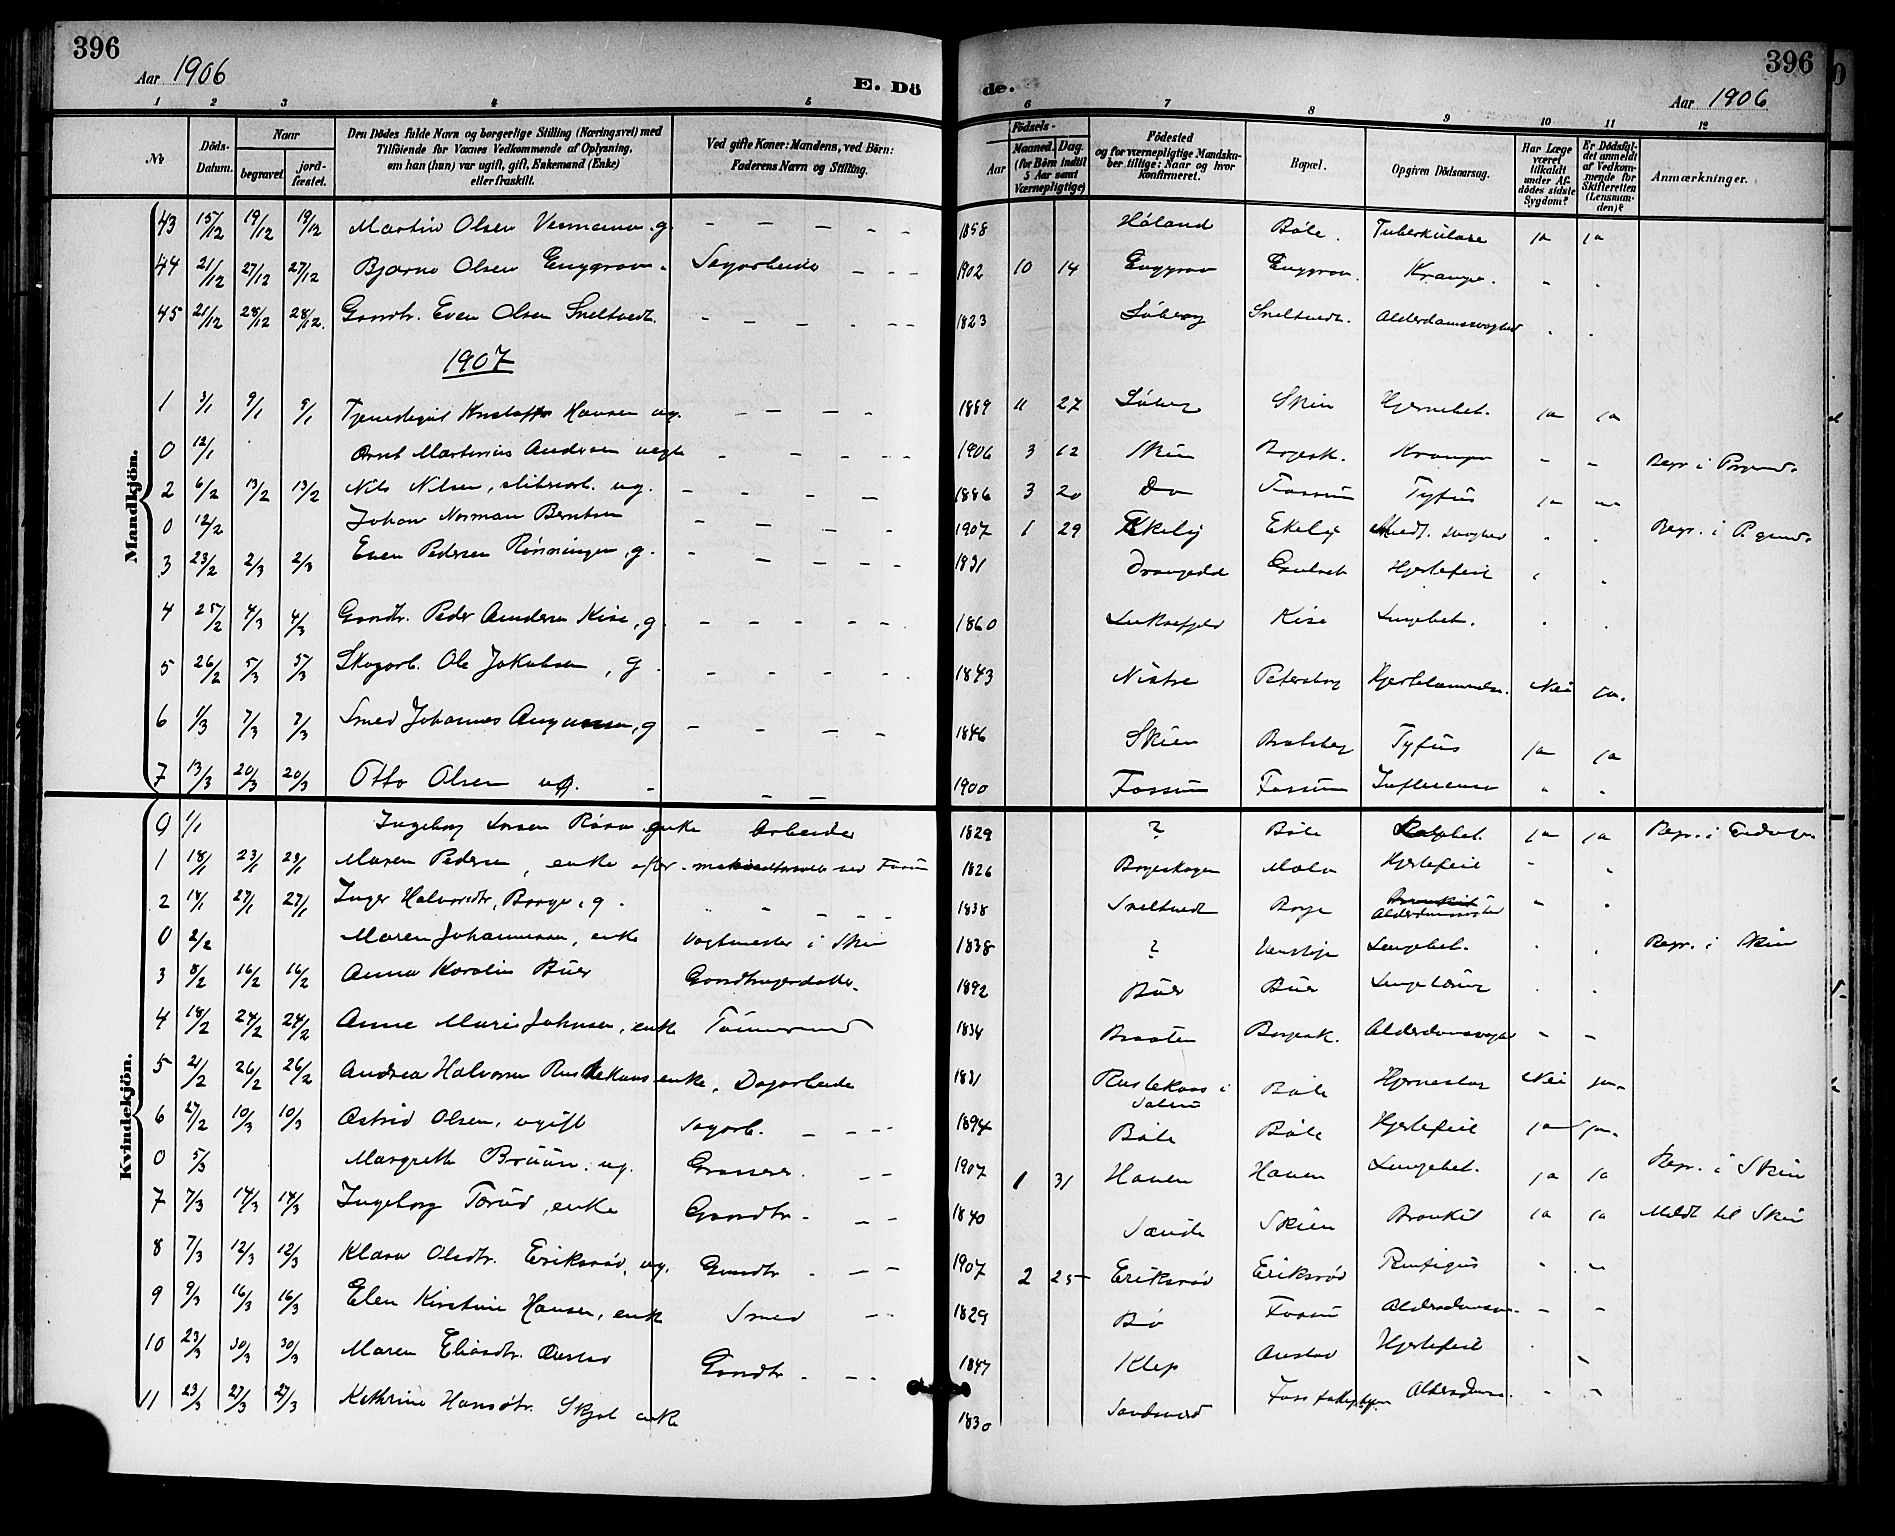 396
Aar 1906
E. Dö
de.
396
Aar 1906
1 2 3 4 5 6 7 8 9 10 11 12
No
Döds-Datum.
Naar
begravet
jordfæstet.
Den Dödes fulde Navn og borgerlige Stilling (Næringsvei) med Tilföiende for Voxnes Vedkommende af Oplysning, om han (hun) var ugift, gift, Enkemand (Enke) eller fraskilt.
Ved gifte Koner: Mandens, ved Börn: Faderens Navn og Stilling.
Födsels-
Aar
Maaned. Dag.
(for Börn indtil 5 Aar samt Værnepligtige)
Födested og for værnepligtige Mandskaber tillige: Naar og hvor Konfirmeret.
Bopæl.
Opgiven Dödsaarsag.
Har Læge været tilkaldt under Afdödes sidste Sygdom?
Er Dödsfaldet anmeldt af Vedkommende for Skifteretten (Lensmanden)?
Anmærkninger.
Mandkjön.
43 15/12 19/12 19/12 Martin Olsen g. - - - - - 1858 Holand Böle. Tuberkulose ja ja
44 21/12 27/12 27/12 Bjarne Olsen Enggrav. Sagarbeider - - - 1902 10 14 Enggrav Enggrav. Krampe. " "
45 21/12 28/12 28/12. Gaardbr. Even Olsen Sneltvedt. - - - - - - 1823 Solberg Sneltvedt. Alderdomssvaghed " "
1907
1 3/1 9/1 9/1 Tjenestegut Kristoffer Hansen ug. - - - - 1889 11 27 Solberg Skien Hjernebet. ja ja
0 12/1 Arnt Martinius Andersen - - - - - 1906 3 12 Skien Borgesk. Krampe - - Begr. i
2 6/2 13/2 13/2 Nils Nilsen, sliberiarb. ug. - - - - 1886 3 20 Do Fossum Tyfus ja
0 12/2 Johan Norman Berntsen - - - - 1907 1 29 Ekelij Ekelij Medf. svaghed " " Begr. i
3 23/2 2/3 2/3 Even Pedersen Rønningen, g. - - - - - 1831 Drangedal Hjertefeil " "
4 25/2 4/3 4/3 Gaardbr. Peder Andersen Kise, g - - - - - 1860 Luksefjeld Kise Lungebet. " "
5 26/2 5/3 5/3 Skogarb. Ole Jakobsen, g. - - - - - 1843 Nistre Petersborg Nei ja.
6 1/3 7/3 7/3 Smed Johannes g - - - - 1846 Skien Bratsberg Tyfus ja ja
7 13/3 20/3 20/3 Otto Olsen ug. - - - 1900 Fossum Fossum Influenza " "
Kvindekjön.
0 1/1 Ingeborg enke Arbeider 1829 ? Böle ja ja Begr. i
1 18/1 23/1 23/1 Maren Pedersen, enke efter ved Fossum 1826 Borgeskogen Hjertefeil - "
2 18/1 27/1 27/1 Inger Halvorsdtr, Borge, g. " - - - 1838 Sneltvedt Borge Alderdomssvaghed " "
0 2/2 Maren Johannessen, enke Vagtmester i Skien 1838 ? Lungebet. " " Begr. i Skien
3 8/2 16/2 16/2 Anna Karolin Buer Gaardbrugerdatter. 1892 Buer Buer " "
4 18/2 24/2 24/2 Anne Marie Johnsen, enke Tømmermand 1834 Braaten Borgesk. Alderdomssvaghed - -
5 21/2 26/2 26/2 Andrea Halvorsen Rustekaas enke, Dagarbeider 1831 Rustekaas i Solum Böle Hjerneslag Nei ja
6 27/2 10/3 10/3 Astrid Olsen, ugift Sagarb. - - - 1894 Böle Böle Hjertefeil ja ja.
0 5/3 Margrethe Bruun, ug. - - 1907 1 31 Haven Haven Lungebet. ja ja Begr. i Skien
7 7/3 14/3 14/3 Ingeborg Torud, enke Gaardbr. - - 1840 Sande Skien Bronkit ja ja Meldt til Skien
8 7/3 12/3 12/3 Klara Olsdtr. Eriksrød, ug. Gaardbr. - - 1907 2 25 Eriksrød Eriksrød " "
9 9/3 16/3 16/3 Elen Kirstine Hansen, enke Smed - - 1829 Bø Fossum - -
10 23/3 30/3 30/3 Maren Eliasdtr. Gaardbr. - - 1847 Klep Hjertefeil " -
11 23/3 27/3 27/3 Kathrine Hansdtr. enke 1830 Sandsverd - -